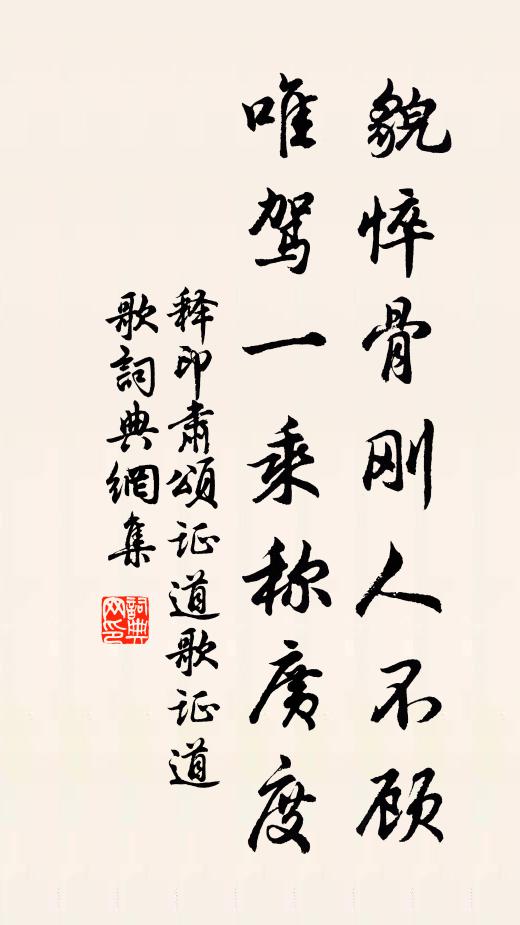 貌悴骨刚人不顾
唯驾一乘称廣度
释印肃頌证道歌证道
歌詞典網集
詞典网印